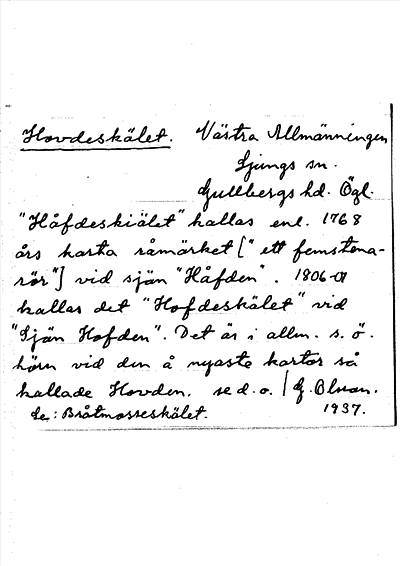 Hovdeskälet. Västra Allmänningen
Ljungs sn.
Gullbergs hd. Ögl.
"Håfdeskiälet" kallas enl. 1768
års karta råmärket [" ett femstena-
rör"] vid sjön "Håfden". 1806-07
kallas det "Hofdeskälet" vid
"Sjön Hofden". Det är i allm. s. ö.
hörn vid den å nyaste kartor så
kallade Hovden. se d. o. / G. Olson.
Se: Bråtmosseskälet. 1937.